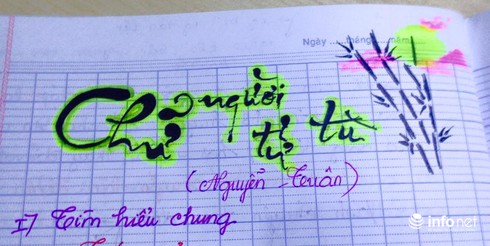 Ngày.....tháng.....năm.....
Chữ người tử tù
(Nguyễn - Tuân)
I) Tìm hiểu chung
infonet